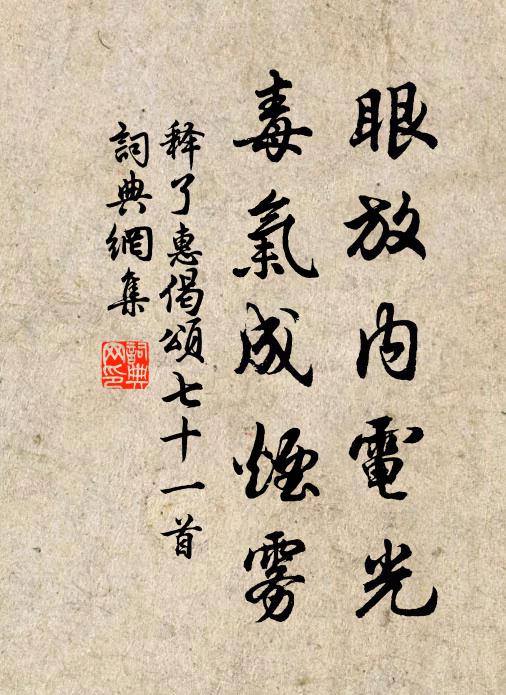 眼放内電光
毒氣成煙雾
释了惠偈頌七十一首
詞典網集
詞典網印